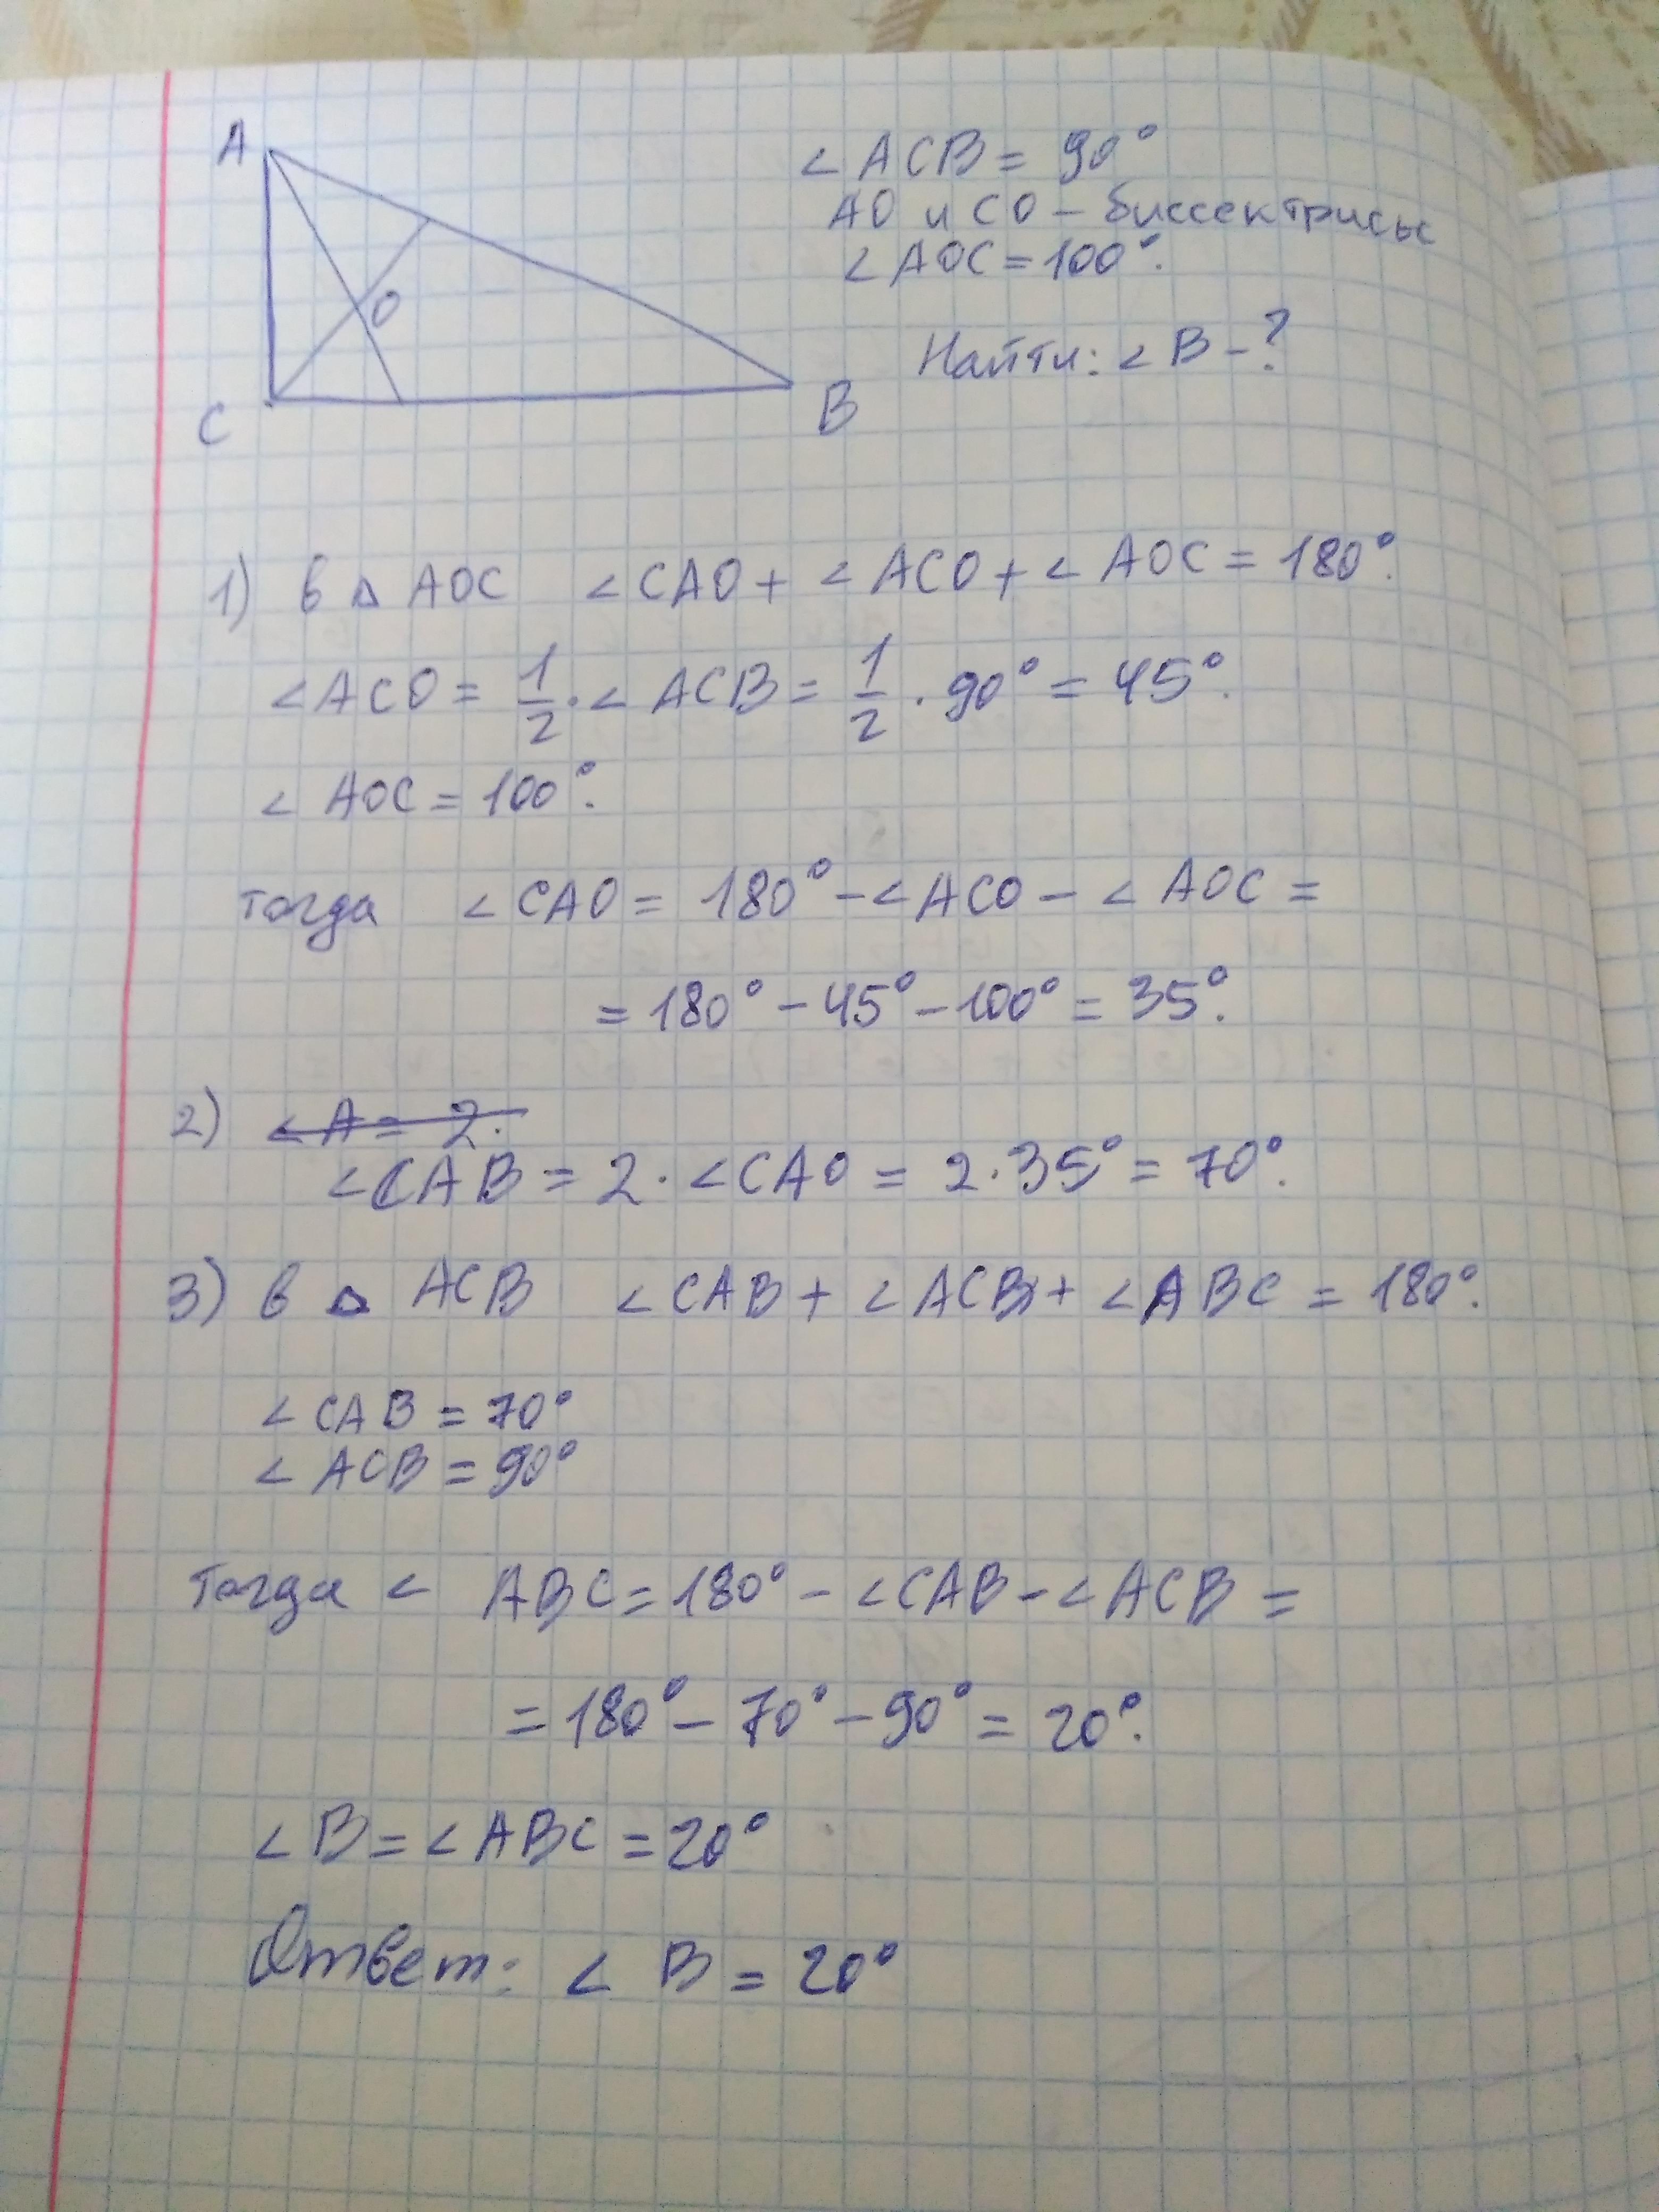 A
O
C
B
∠ACB = 90°
AO и CO – биссектрисы
∠AOC = 100°.
Найти: ∠B – ?
1) в △ AOC ∠CAO + ∠ACO + ∠AOC = 180°.
∠ACO = 1/2 · ∠ACB = 1/2 · 90° = 45°.
∠AOC = 100°.
тогда ∠CAO = 180° – ∠ACO – ∠AOC =
= 180° – 45° – 100° = 35°.
2) ∠A = 2·
∠CAB = 2 · ∠CAO = 2 · 35° = 70°.
3) в △ ACB ∠CAB + ∠ACB + ∠ABC = 180°.
∠CAB = 70°
∠ACB = 90°
тогда ∠ABC = 180° – ∠CAB – ∠ACB =
= 180° – 70° – 90° = 20°.
∠B = ∠ABC = 20°
Ответ: ∠B = 20°